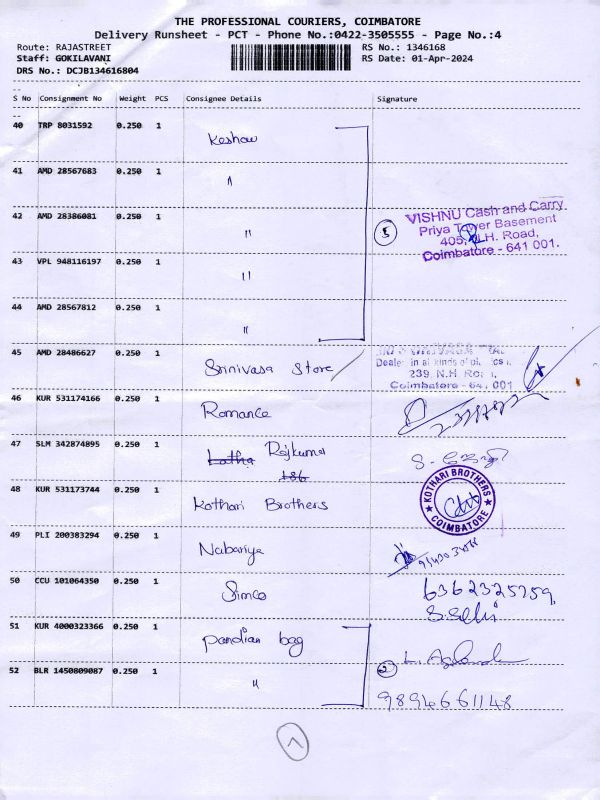 THE PROFESSIONAL COURIERS, COIMBATORE
Delivery Runsheet - PCT - Phone No.:0422-3505555 - Page No.:4
Route: RAJASTREET
RS No.: 1346168
Staff: GOKILAVANI
RS Date: 01-Apr-2024
DRS No.: DCJB134616804
S No Consignment No Weight PCS Consignee Details Signature
40 TRP 8031592 0.250 1
41 AMD 28567683 0.250 1 "
42 AMD 28386081 0.250 1 "
5
VISHNU Cash and Carry
Priya Tower Basement
405, N.H. Road,
Coimbatore - 641 001.
43 VPL 948116197 0.250 1 "
44 AMD 28567812 0.250 1 "
45 AMD 28486627 0.250 1 Srinivasa Store
239, N.H. Road,
Coimbatore - 641 001
46 KUR 531174166 0.250 1 Romance
47 SLM 342874895 0.250 1 Latha Rajkumar
186
48 KUR 531173744 0.250 1 Kothari Brothers
KOTHARI BROTHERS
COIMBATORE
49 PLI 200383294 0.250 1 Nabariya
50 CCU 101064350 0.250 1 Simco
6362325759
S. Selvi
51 KUR 4000323366 0.250 1 pandian bag
52 BLR 1450809087 0.250 1 "
2
9894661148